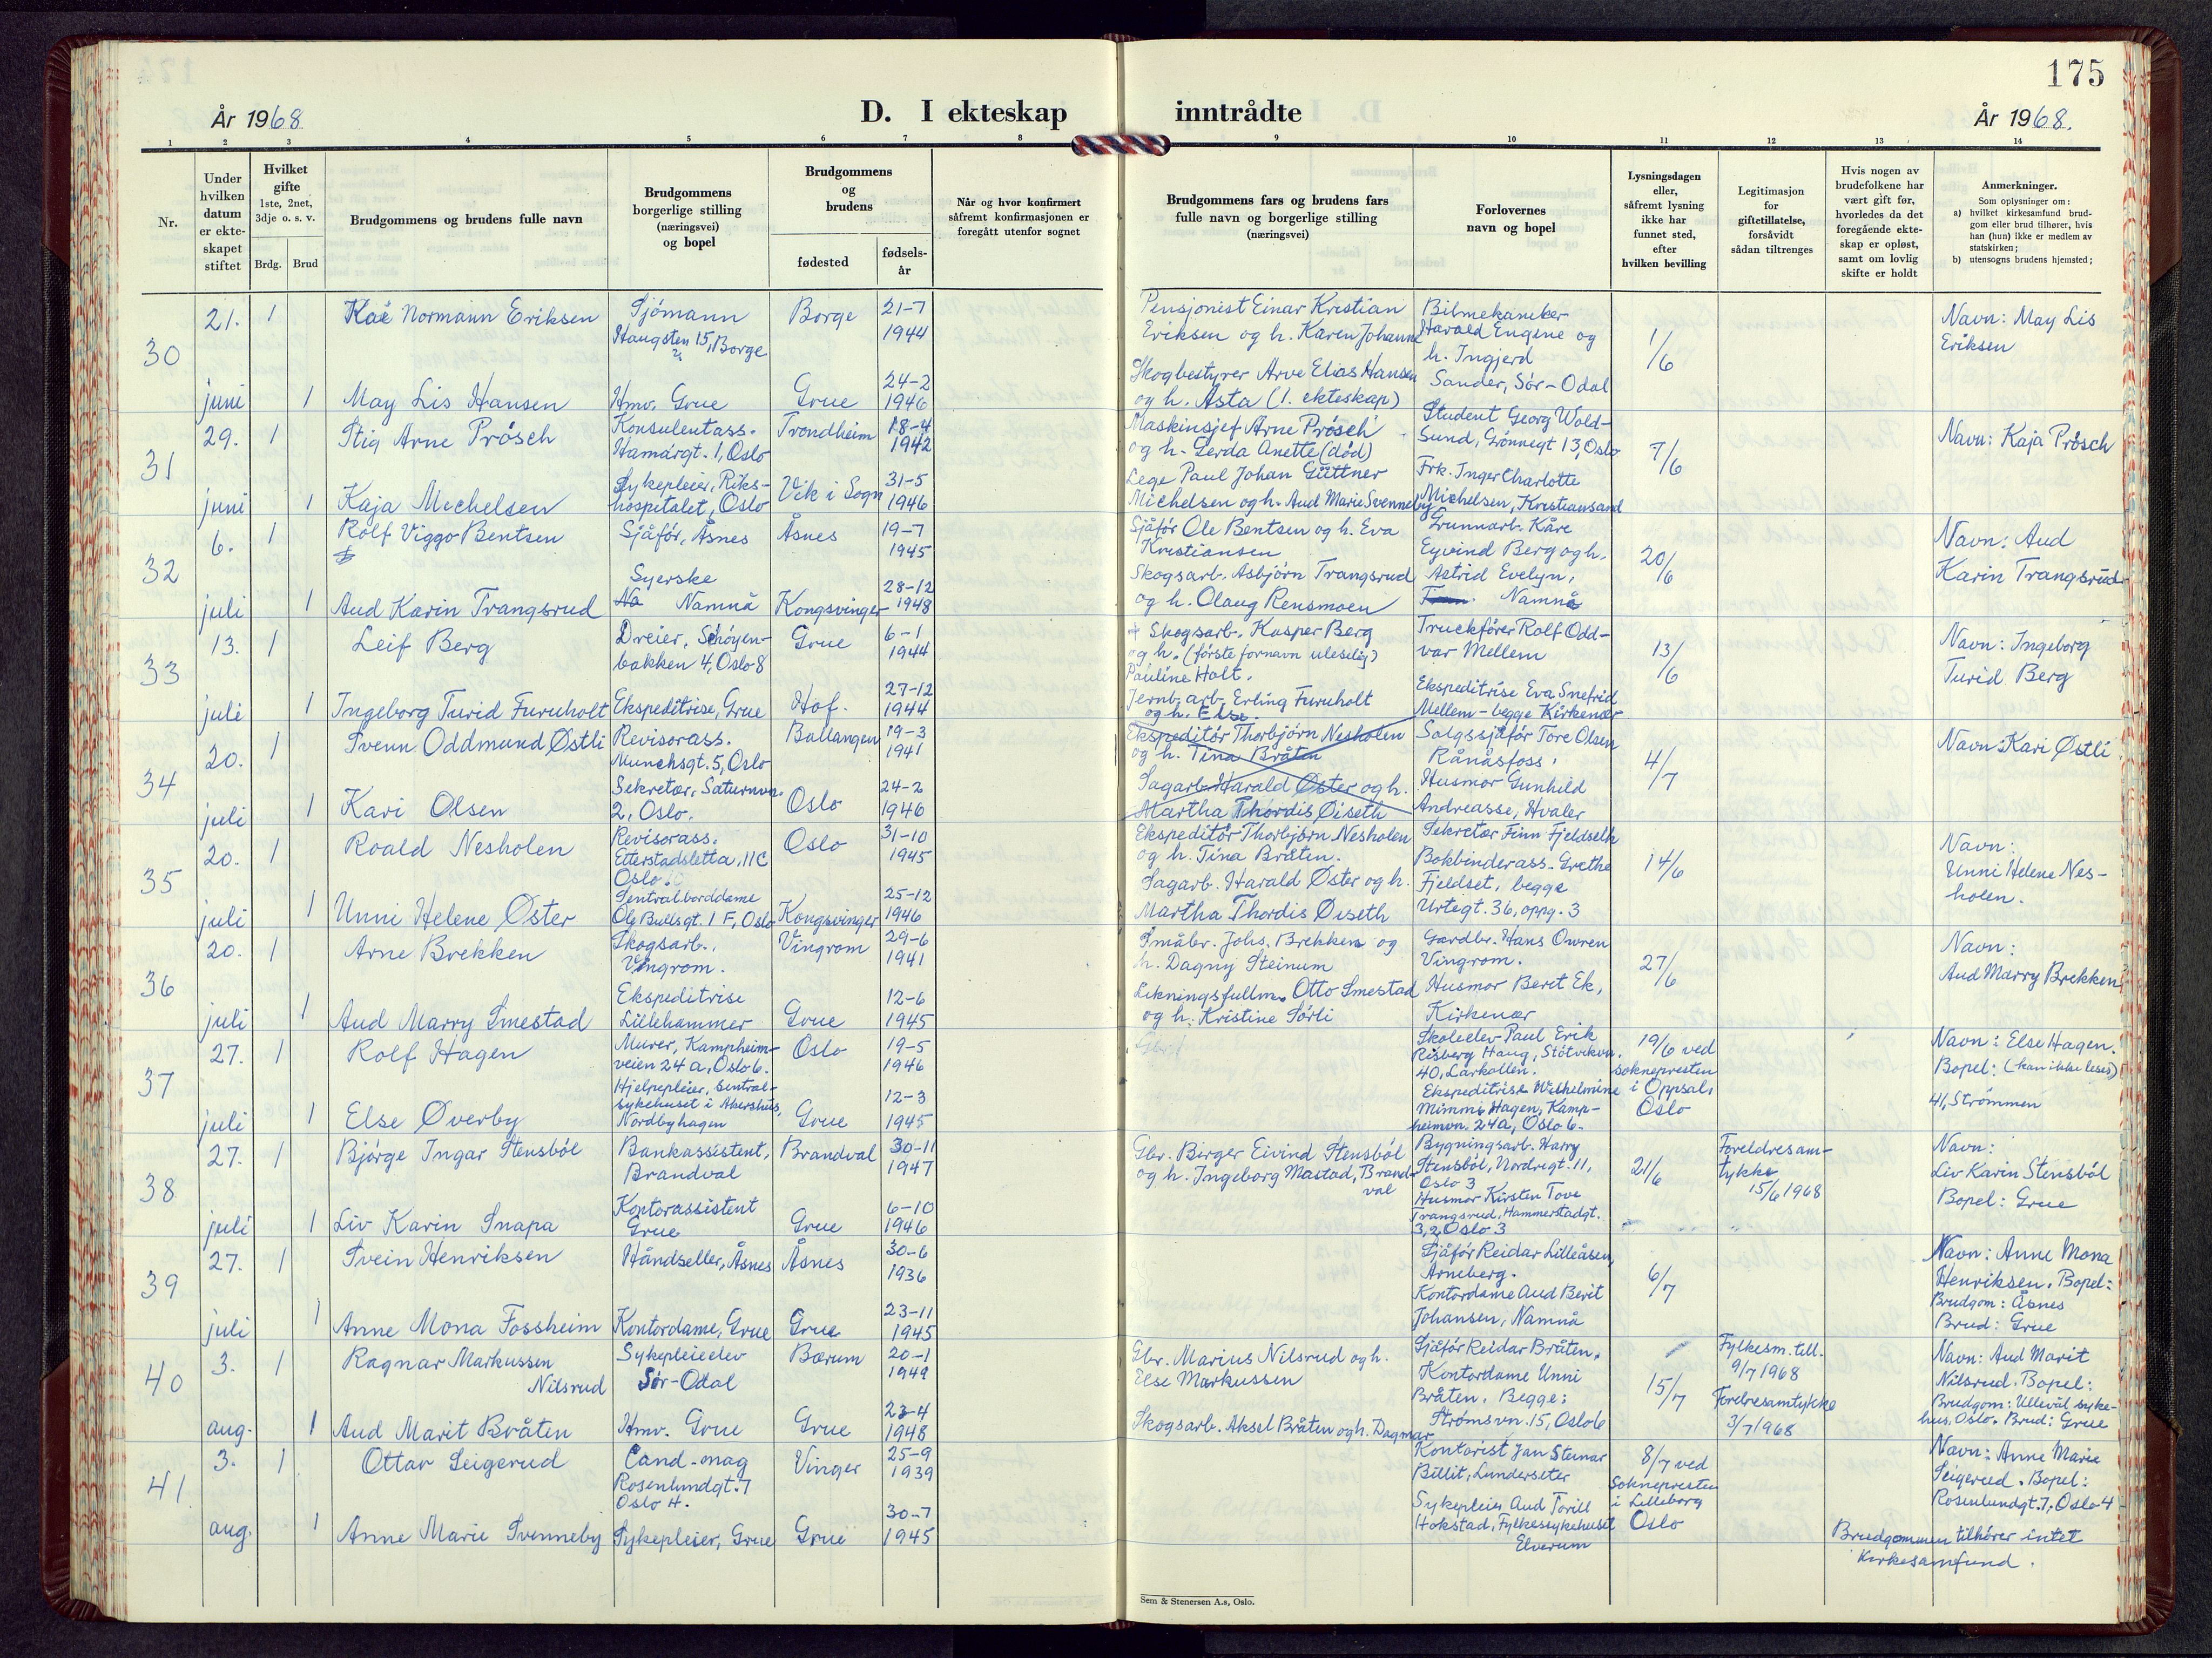 175
År 1968
D. I ekteskap inntrådte
År 1968.
1 2 3 4 5 6 7 8 9 10 11 12 13 14
Nr.
Under hvilken datum er ekte-skapet stiftet
Hvilket gifte 1ste, 2net, 3dje o. s. v.
Brdg. Brud
Brudgommens og brudens fulle navn
Brudgommens borgerlige stilling (næringsvei) og bopel
Brudgommens og brudens
fødested
fødsels-år
Når og hvor konfirmert såfremt konfirmasjonen er foregått utenfor sognet
Brudgommens fars og brudens fars fulle navn og borgerlige stilling (næringsvei)
Forlovernes navn og bopel
Lysningsdagen eller, såfremt lysning ikke har funnet sted, efter hvilken bevilling
Legitimasjon for giftetillatelse, forsåvidt sådan tiltrenges
Hvis nogen av brudefolkene har vært gift før, hvorledes da det foregående ekte-skap er opløst, samt om lovlig skifte er holdt
Anmerkninger.
Som oplysninger om:
a) hvilket kirkesamfund brud-gom eller brud tilhører, hvis han (hun) ikke er medlem av statskirken;
b) utensogns brudens hjemsted;
30
21. juni
1
Normann Eriksen
Sjømann
Haugsten 15, Borge
Borge
21-7
1944
1
May Lis Hansen
Hmv. Grue
Grue
24-2
1946
Pensjonist Einar Kristian
Eriksen og h. Karen Johanne
Skogbestyrer Arve Elias Hansen
og h. Asta (1. ekteskap)
Bilmekaniker
Harald Eugene og
h. Ingjerd
Sander, Sør-Odal
1/6
Navn: May Lis
Eriksen
31
29. juni
1
Stig Arne Prøsch
Konsulentass.
Hamargt. 1, Oslo
Trondheim
18-4
1942
1
Kaja Michelsen
Sykepleier, Riks-
hospitalet, Oslo
Vik i Sogn
31-5
1946
Maskinsjef Arne Prøsch
og h. Gerda Anette (død)
Lege Paul Johan Güttner
Michelsen og h. Aud Marie Svenneby
Student Georg Wold-
Sund, Grønnegt 13, Oslo
Frk. Inger Charlotte
Michelsen, Kristiansand
7/6
Navn: Kaja Prøsch
32
6. juli
1
Rolf Viggo Bentsen
Sjåfør, Åsnes
Åsnes
19-7
1945
1
Aud Karin Trangsrud
Syerske
Namnå
Kongsvinger
28-12
1948
Sjåfør Ole Bentsen og h. Eva
Kristiansen
Skogsarb. Asbjørn Trangsrud
og h. Olaug Rensmoen
Grunnarb. Kåre
Eyvind Berg og h.
Astrid Evelyn,
Namnå
20/6
Navn: Aud
Karin Trangsrud
33
13. juli
1
Leif Berg
Dreier, Schøyen-
bakken 4, Oslo 8
Grue
6-1
1944
1
Ingeborg Turid Furuholt
Ekspeditrise, Grue
Hof.
27-12
1944
+ Skogsarb. Kasper Berg
og h. (første fornavn uleselig)
Pauline Holt.
Jernb. arb. Erling Furuholt
og h. Else.
Truckfører Rolf Odd-
var Mellem
Ekspeditrise Eva Snefrid
Mellem - begge Kirkenær
13/6
Navn: Ingeborg
Turid Berg
34
20. juli
1
Svenn Oddmund Østli
Revisorass.
Munchsgt. 5, Oslo
Ballangen
19-3
1941
1
Kari Olsen
Sekretær, Saturnvn.
2, Oslo.
Oslo
24-2
1946
Ekspeditør Thorbjørn Nesholen
og h. Tina Bråten
Sagarb. Harald Øster og h.
Martha Thordis Øiseth
Salgssjåfør Tore Olsen
Rånåsfoss.
Husmor Gunhild
Andreasse, Hvaler
4/7
Navn: Kari Østli
35
20. juli
1
Roald Nesholen
Revisorass.
Etterstadsletta, 11C
Oslo.
Oslo
31-10
1945
1
Unni Helene Øster
Sentralborddame
Ole Bullsgt. 1 F, Oslo
Kongsvinger
25-12
1946
Ekspeditør Thorbjørn Nesholen
og h. Tina Bråten.
Sagarb. Harald Øster og h.
Martha Thordis Øiseth
Sekretær Finn
Bokbinderass. Grethe
Fjeldset, begge
Urtegt. 36, oppg. 3
14/6
Navn:
Unni Helene Nes-
holen.
36
20. juli
1
Arne Brekken
Skogsarb.,
Vingrom.
Vingrom
29-6
1941
1
Aud Marry Smestad
Ekspeditrise
Lillehammer
Grue
12-6
1945
Småbr. Johs. Brekken og
h. Dagny Steinum
Likningsfullm. Otto Smestad
og h. Kristine Sørli
Gardbr. Hans Owren
Vingrom.
Husmor Berit Ek,
Kirkenær
27/6
Navn:
Aud Marry Brekken
37
27. juli
1
Rolf Hagen
Murer, Kampheim-
veien 24 a, Oslo 6.
Oslo
19-5
1946
1
Else Øverby
Hjelpepleier, Sentral-
sykehuset i Akershus,
Nordbyhagen
Grue
12-3
1945
Skoleelev Paul Erik
Risberg Haug, Støtvikvn.
40, Larkollen.
Ekspeditrise Wilhelmine
Mimmi Hagen, Kamp-
heimvn. 24a, Oslo 6.
19/6 ved
soknepresten
i Oppsal,
Oslo
Navn: Else Hagen.
Bopel: (kan ikke leses)
41, Strømmen
38
27. juli
1
Bjørge Ingar Stensbøl
Bankassistent,
Brandval
Brandval
30-11
1947
1
Liv Karin Snapa
Kontorassistent
Grue
Grue
6-10
1946
Gbr. Birger Eivind Stensbøl
og h. Ingeborg Mastad, Brand-
val
Bygningsarb. Harry
Stensbøl, Nordregt. 11,
Oslo 3
Husmor Kirsten Tove
Trangsrud, Hammerstadgt.
32, Oslo 3
21/6
Foreldresam-
tykke
15/6 1968
Navn:
Liv Karin Stensbøl
Bopel: Grue
39
27. juli
1
Svein Henriksen
Håndseller, Åsnes
Åsnes
30-6
1936
1
Anne Mona Fossheim
Kontordame, Grue
Grue
23-11
1945
Sjåfør Reidar Lilleåsen,
Arneberg.
Kontordame Aud Berit
Johansen, Namnå
6/7
Navn: Anne Mona
Henriksen. Bopel:
Brudgom: Åsnes
Brud: Grue
40
3. aug.
1
Ragnar Markussen
Nilsrud
Sykepleieelev
Sør-Odal
Bærum
20-1
1949
1
Aud Marit Bråten
Hmv. Grue
Grue
23-4
1948
Gbr. Marius Nilsrud og h.
Else Markussen
Skogsarb. Aksel Bråten og h. Dagmar
Sjåfør Reidar Bråten.
Kontordame Unni
Bråten. Begge:
Strømsvn. 15, Oslo 6
15/7
Fylkesm. till.
9/7 1968
Forelresamtykke
3/7 1968
Navn: Aud Marit
Nilsrud. Bopel:
Brudgom: Ullevål syke-
hus, Oslo. Brud: Grue
41
3. aug.
1
Ottar Seigerud
Cand-mag
Rosenlundgt. 7
Oslo 4.
Vinger
25-9
1939
1
Anne Marie Svenneby
Sykepleier, Grue
Grue
30-7
1945
Kontorist Jan Steinar
Billit, Lunderseter
Sykepleier Aud Torill
Hokstad, Fylkessykehuset
Elverum
8/7 ved
Soknepresten
i Lilleborg
Oslo
Navn: Anne Marie
Seigerud. Bopel:
Rosenlundgt. 7, Oslo 4
Brudgommen tilhører intet
Kirkesamfund.
Sem & Stenersen A.s, Oslo.